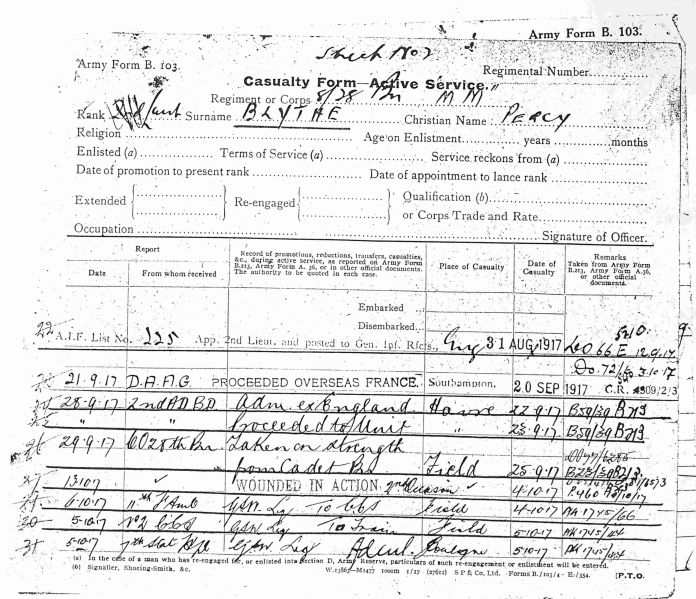 Army Form B. 103.
Sheet No 2
Army Form B. 103.
Regimental Number
Casualty Form—Active Service.
Regiment or Corps 8/28 Bn M M
Rank Surname BLYTHE Christian Name PERCY
Religion Age on Enlistment years months
Enlisted (a) Terms of Service (a) Service reckons from (a)
Date of promotion to present rank Date of appointment to lance rank
Extended Re-engaged Qualification (b)
or Corps Trade and Rate
Occupation Signature of Officer.
Report
Date From whom received
Record of promotions, reductions, transfers, casualties, &c., during active service, as reported on Army Form B.213, Army Form A. 36, or in other official documents. The authority to be quoted in each case.
Place of Casualty
Date of Casualty
Remarks
Taken from Army Form B.213, Army Form A.36, or other official documents.
Embarked
Disembarked
A.I.F. List No. 225 App. 2nd Lieut. and posted to Gen. Inf. Rfcts. Eng 31 AUG 1917 66 E 12.9.17
Do. 72/6 3.10.17
21.9.17 D.A.A.G. PROCEEDED OVERSEAS FRANCE. Southampton, 20 SEP 1917 C.R. 4309/2/3
28.9.17 2nd A.D.B.D Adm. ex England Havre 22.9.17 B59/39 B213
" " Proceeded to Unit " 23.9.17 B59/39 B213
29.9.17 CO 28th Bn Taken on strength
from Cadet Bn Field 25.9.17
13.10.17 WOUNDED IN ACTION 2nd Occasion 4.10.17
6.10.17 F Amb GSW Leg To CCS Field 4.10.17 AA 1745/66
5.10.17 No 2 CCS GSW Leg To Train Field 5.10.17 AA 1745/44
5.10.17 7th Stat GSW Leg Adm. Boulogne 5.10.17 AA 1745/44
(a) In the case of a man who has re-engaged for, or enlisted into Section D, Army Reserve, particulars of such re-engagement or enlistment will be entered.
(b) Signaller, Shoeing-Smith, &c.
[P.T.O.